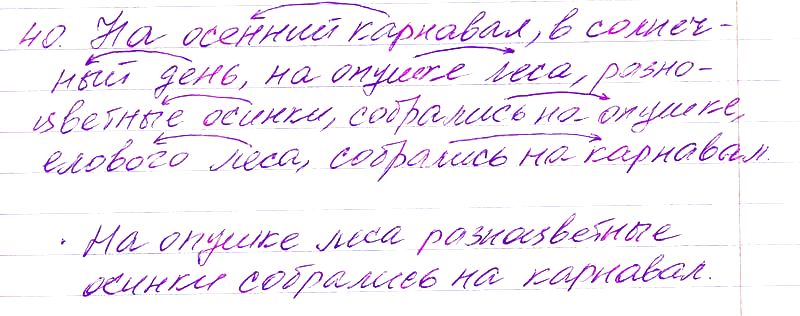 40. На осенний карнавал, в солнеч-
ный день, на опушке леса, разно-
цветные осинки, собрались на опушке,
елового леса, собрались на карнавал.
· На опушке леса разноцветные
осинки собрались на карнавал.